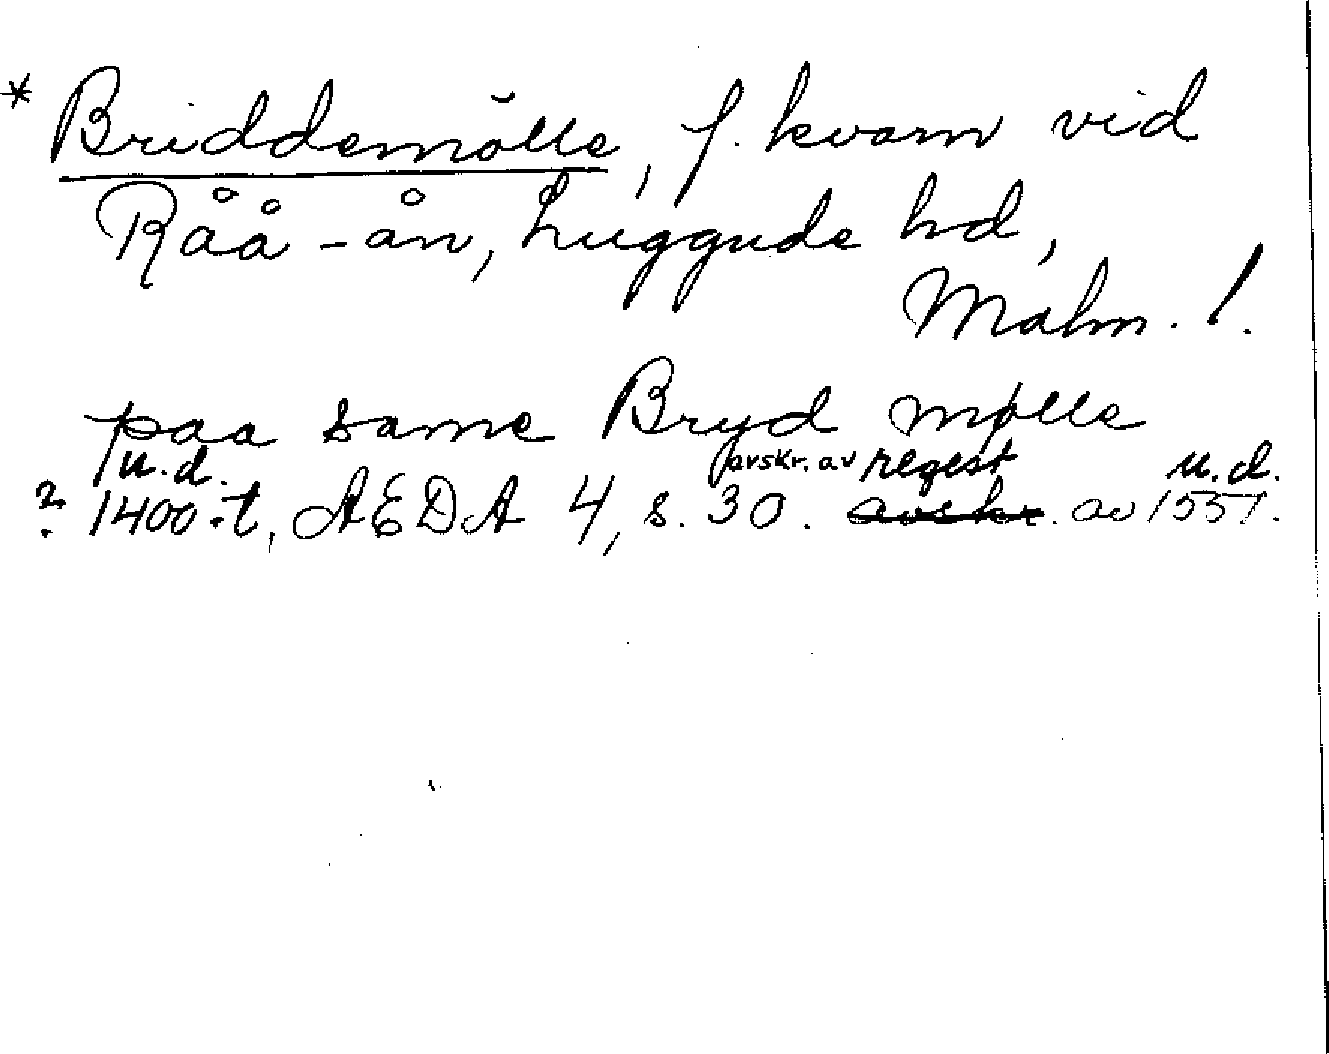 * Briddemölle, f. kvarn vid
Råå-ån, Luggude hd,
Malm. l.
paa same Bryd mølle
u.d. avskr. av regest u.d.
? 1400-t, AEDA 4, s. 30. avskr. av 1551.